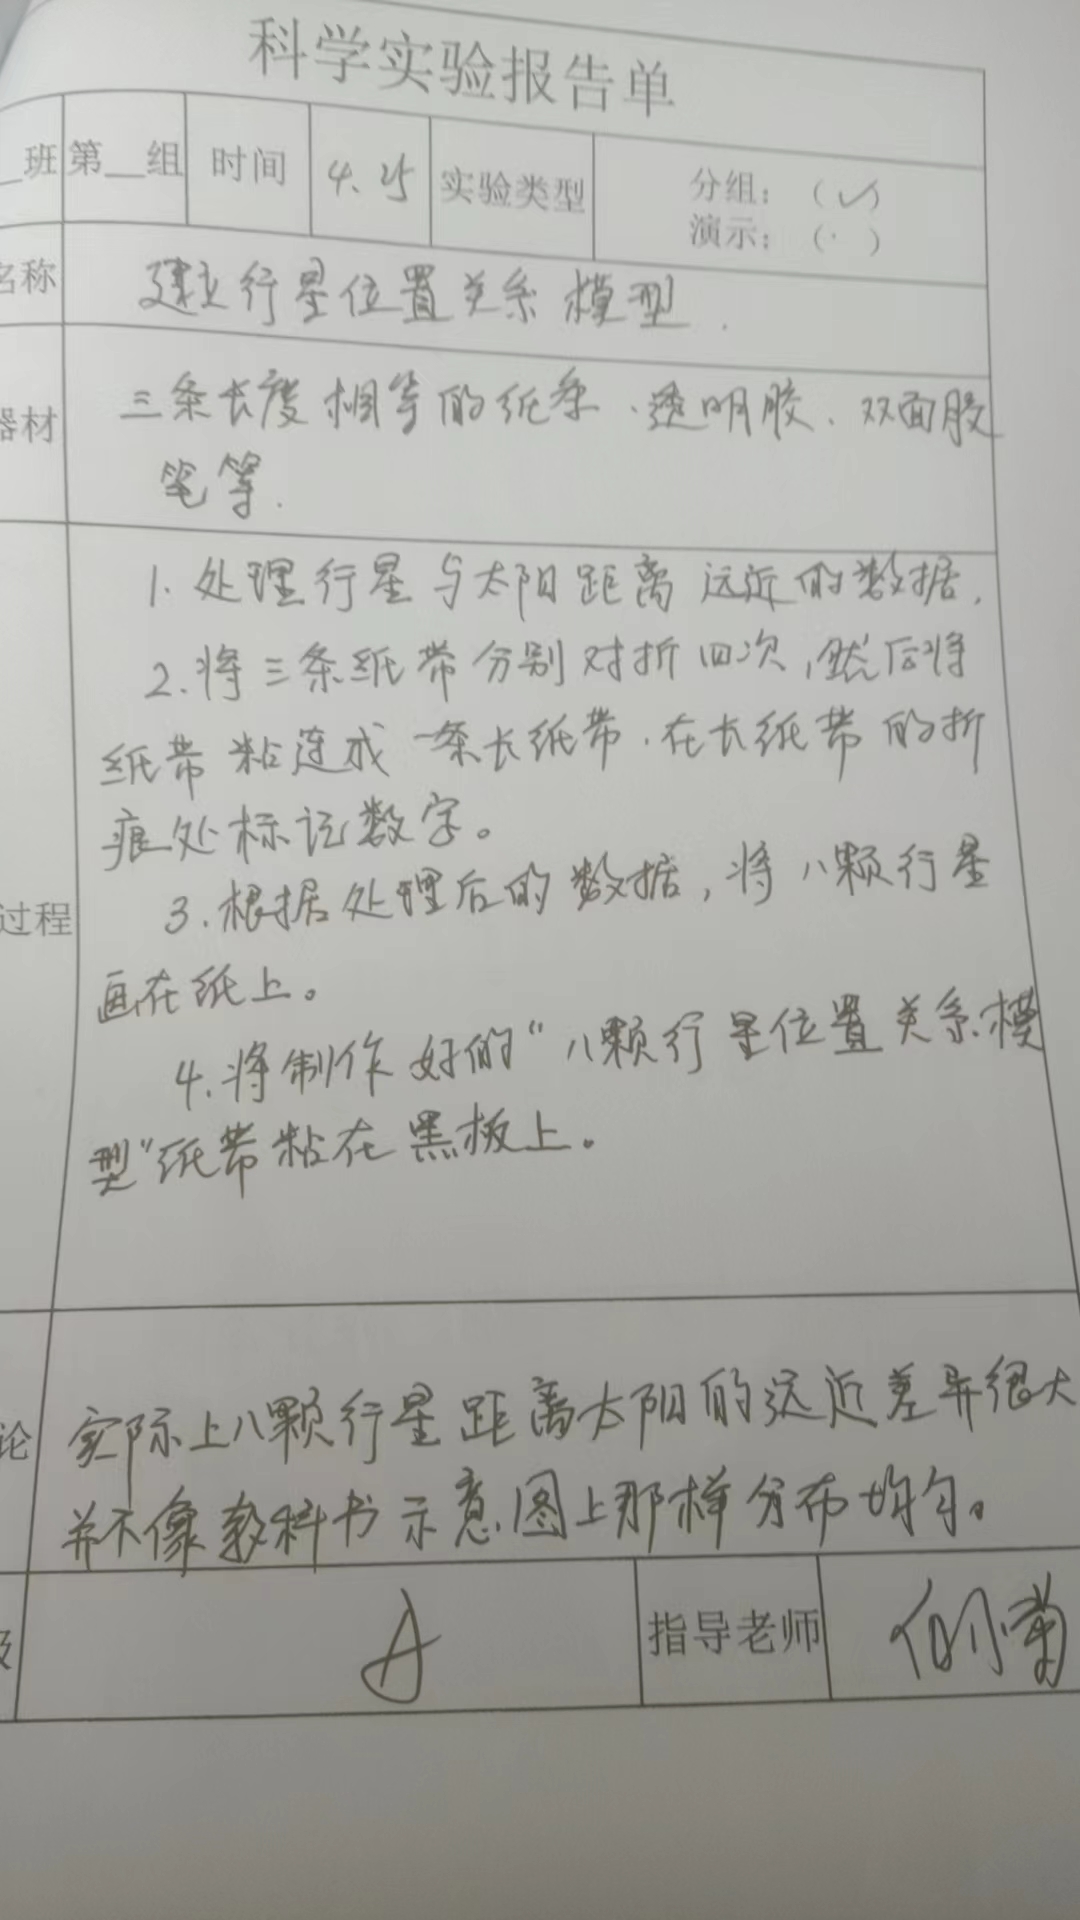 科学实验报告单
班 第__组 时间 4.25 实验类型 分组：（✓）
演示：（ ）
名称 建立行星位置关系模型.
器材 三条长度相等的纸条、透明胶、双面胶
笔等.
1. 处理行星与太阳距离远近的数据，
2. 将三条纸带分别对折四次，然后将
纸带粘连成一条长纸带.在长纸带的折
痕处标记数字。
3. 根据处理后的数据，将八颗行星
过程
画在纸上。
4. 将制作好的“八颗行星位置关系模
型”纸带粘在黑板上。
论 实际上八颗行星距离太阳的远近差异很大
并不像教科书示意图上那样分布均匀。
级 A 指导老师